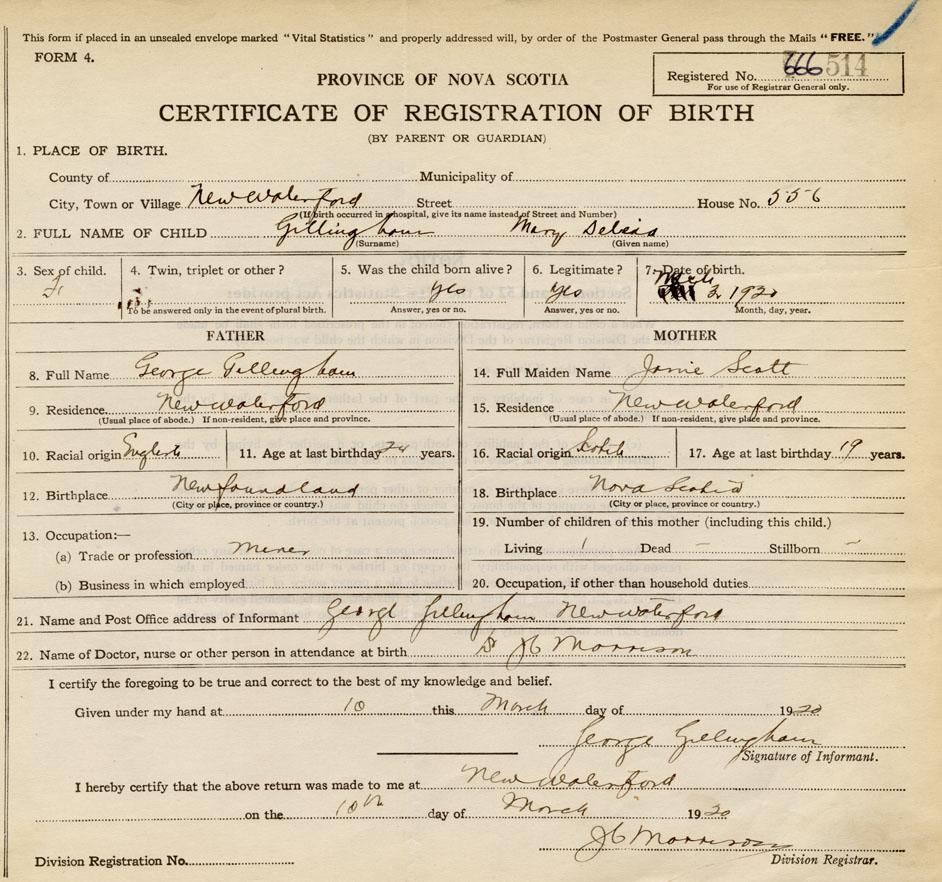 This form if placed in an unsealed envelope marked "Vital Statistics" and properly addressed will, by order of the Postmaster General pass through the Mails "FREE."
FORM 4.
Registered No. 666 514
For use of Registrar General only.
PROVINCE OF NOVA SCOTIA
CERTIFICATE OF REGISTRATION OF BIRTH
(BY PARENT OR GUARDIAN)
1. PLACE OF BIRTH.
County of Municipality of
City, Town or Village New Waterford Street House No. 556
(If birth occurred in a hospital, give its name instead of Street and Number)
2. FULL NAME OF CHILD Gillingham Mary
(Surname) (Given name)
3. Sex of child. 4. Twin, triplet or other? 5. Was the child born alive? 6. Legitimate? 7. Date of birth.
F. yes yes 3, 1920
To be answered only in the event of plural birth. Answer, yes or no. Answer, yes or no. Month, day, year.
FATHER MOTHER
8. Full Name George Gillingham 14. Full Maiden Name Janie Scott
9. Residence New Waterford 15. Residence New Waterford
(Usual place of abode.) If non-resident, give place and province. (Usual place of abode.) If non-resident, give place and province.
10. Racial origin English 11. Age at last birthday 24 years. 16. Racial origin Scotch 17. Age at last birthday 19 years.
12. Birthplace Newfoundland 18. Birthplace Nova Scotia
(City or place, province or country.) (City or place, province or country.)
13. Occupation:— 19. Number of children of this mother (including this child.)
(a) Trade or profession Miner Living 1 Dead – Stillborn –
(b) Business in which employed 20. Occupation, if other than household duties
21. Name and Post Office address of Informant George Gillingham New Waterford
22. Name of Doctor, nurse or other person in attendance at birth Dr JC Morrison
I certify the foregoing to be true and correct to the best of my knowledge and belief.
Given under my hand at 10 this March day of 1920
George Gillingham
Signature of Informant.
I hereby certify that the above return was made to me at New Waterford
on the 10th day of March 1920
JC Morrison
Division Registration No. Division Registrar.